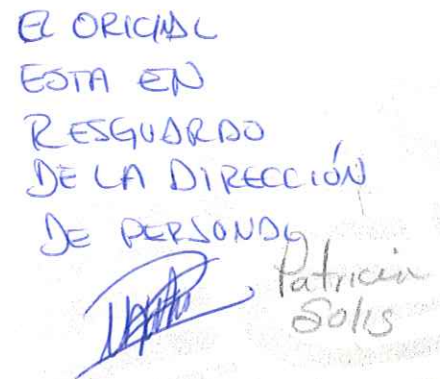 El ORIGINAL
ESTA EN
RESGUARDO
DE LA DIRECCIÓN
DE PERSONAL
Patricia
Solis